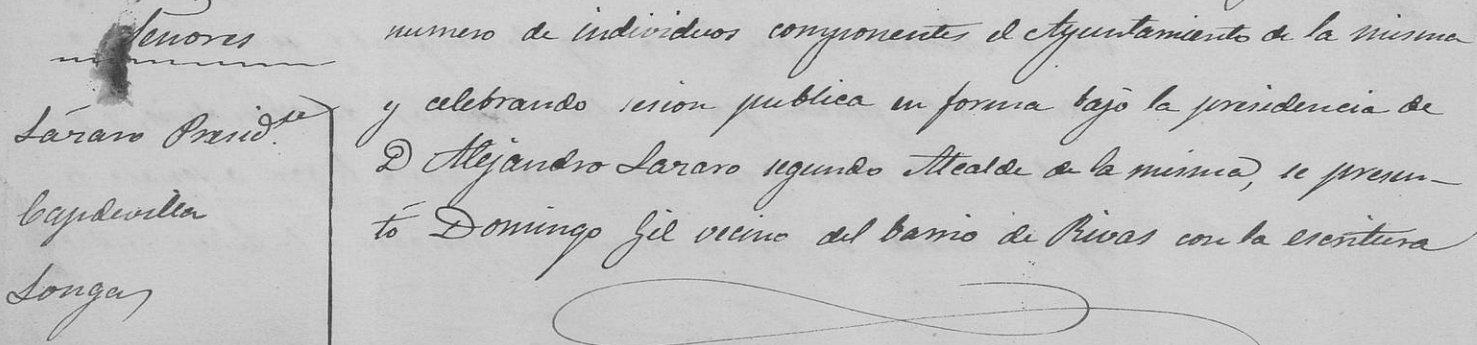 Señores
Lázaro Presid.te
Capdevilla
Longas
numero de individuos componentes el Ayuntamiento de la misma
y celebrando sesion publica en forma bajo la presidencia de
D Alejandro Lazaro segundo Alcalde de la misma, se presen-
tó Domingo Gil vecino del barrio de Rivas con la escritura